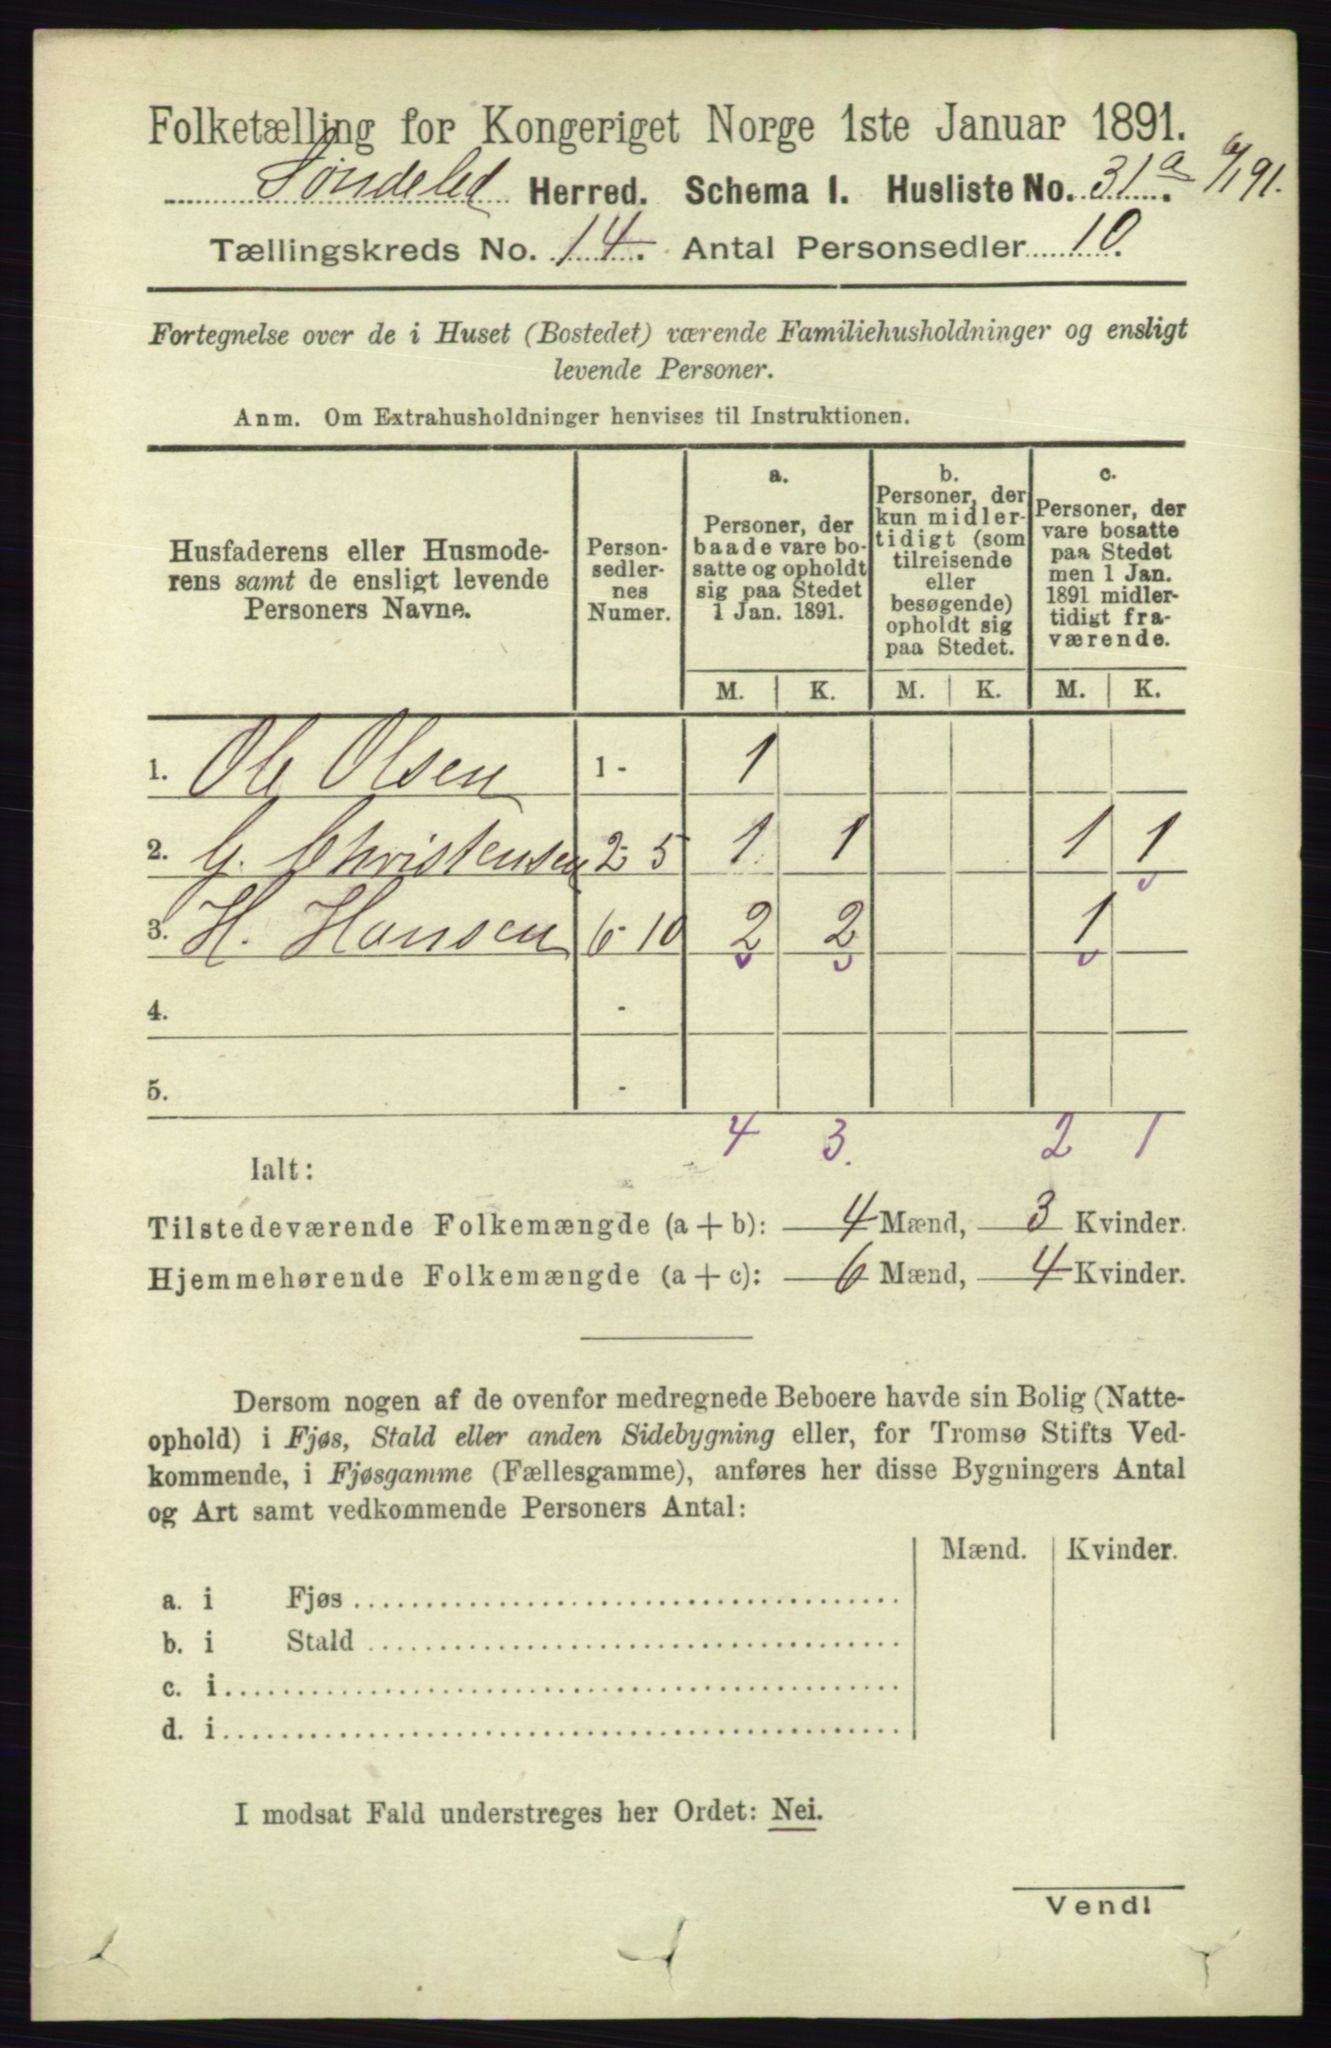 Folketælling for Kongeriget Norge 1ste Januar 1891.
Søndeled Herred. Schema I. Husliste No. 31a.
Tællingskreds No. 14. Antal Personsedler 10.
Fortegnelse over de i Huset (Bostedet) værende Familiehusholdninger og ensligt
levende Personer.
Anm. Om Extrahusholdninger henvises til Instruktionen.
Husfaderens eller Husmode-
rens samt de ensligt levende
Personers Navne.
Person-
sedler-
nes
Numer.
a.
Personer, der
baade vare bo-
satte og opholdt
sig paa Stedet
1 Jan. 1891.
b.
Personer, der
kun midler-
tidigt (som
tilreisende
eller
besøgende)
opholdt sig
paa Stedet.
c.
Personer, der
vare bosatte
paa Stedet
men 1 Jan.
1891 midler-
tidigt fra-
værende.
M. K. M. K. M. K.
1. Ole Olsen 1 - 1
2. G. Christensen 2-5 1 1 1 1
3. H. Hansen 6-10 2 2 1
4. -
5. -
4 3. 2 1
Ialt:
Tilstedeværende Folkemængde (a + b): 4 Mænd, 3 Kvinder.
Hjemmehørende Folkemængde (a + c): 6 Mænd, 4 Kvinder.
Dersom nogen af de ovenfor medregnede Beboere havde sin Bolig (Natte-
ophold) i Fjøs, Stald eller anden Sidebygning eller, for Tromsø Stifts Ved-
kommende, i Fjøsgamme (Fællesgamme), anføres her disse Bygningers Antal
og Art samt vedkommende Personers Antal:
Mænd. Kvinder.
a. i Fjøs
b. i Stald
c. i
d. i
I modsat Fald understreges her Ordet: Nei.
Vend!